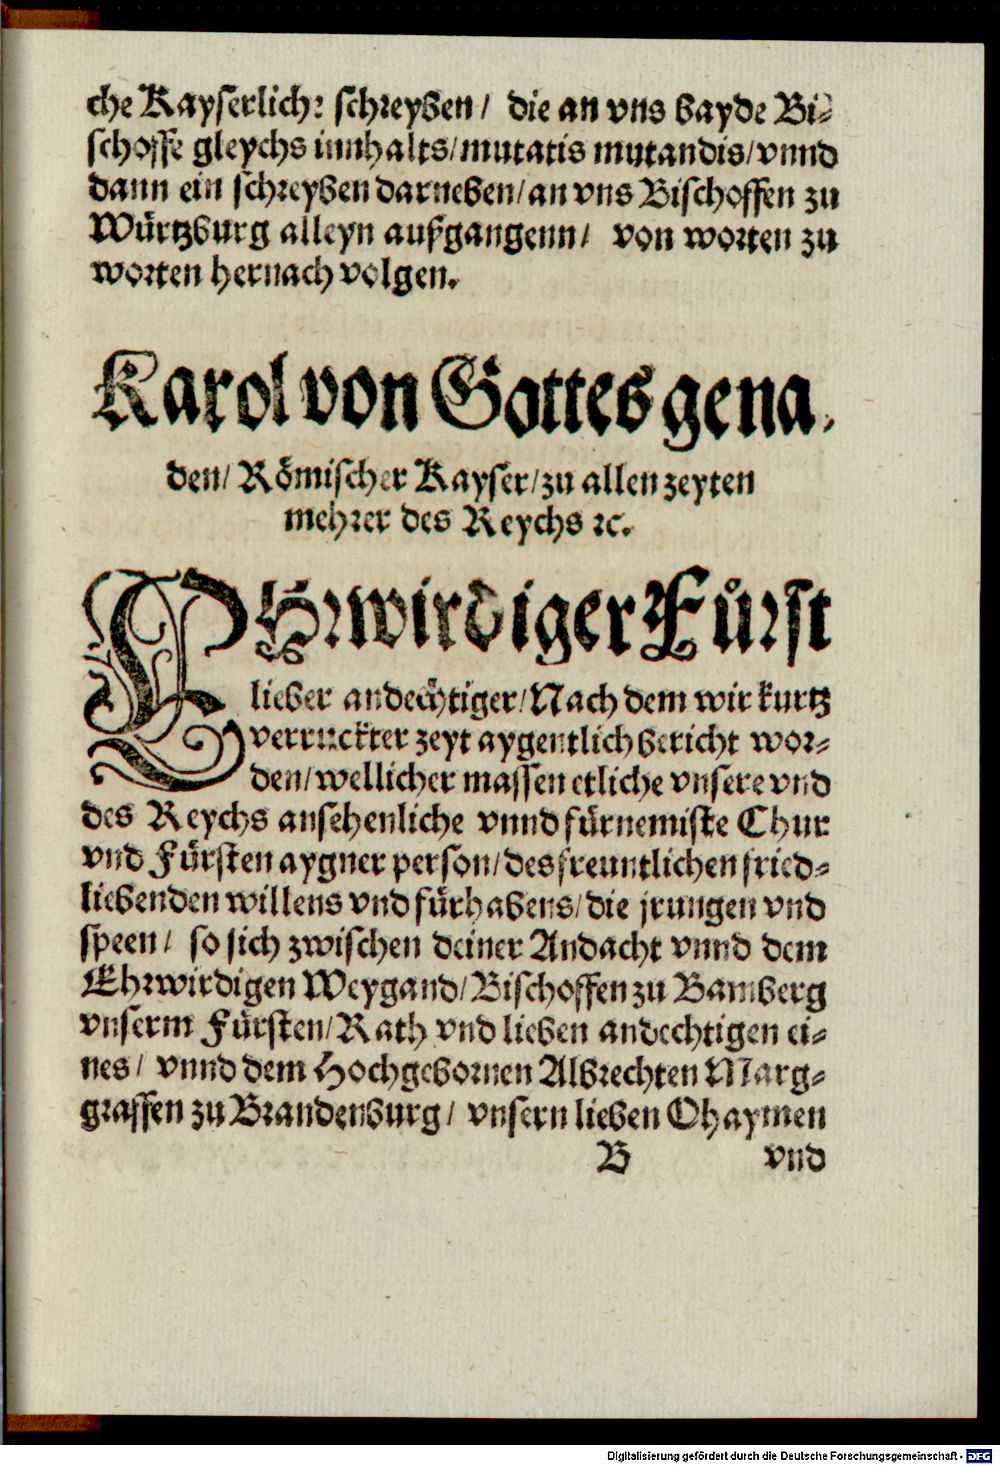 che Kayserlich: schreyben/ die an vns bayde Bi-
schoffe gleychs innhalts/mutatis mutandis/vnnd
dann ein schreyben darneben/an vns Bischoffen zu
Wuͤrtzburg alleyn außgangenn/ von worten zu
worten hernach volgen.
Karol von Gottes gena-
den/ Roͤmischer Kayser/zu allen zeyten
mehrer des Reychs ꝛc.
EHrwirdiger Fuͤrst
lieber andechtiger/Nach dem wir kurtz
verruckter zeyt aygentlich bericht wor-
den/wellicher massen etliche vnsere vnd
des Reychs ansehenliche vnnd fuͤrnemiste Chur
vnd Fuͤrsten aygner person/des freuntlichen fried-
liebenden willens vnd fuͤrhabens/die jrungen vnd
speen/ so sich zwischen deiner Andacht vnnd dem
Ehrwirdigen Weygand/Bischoffen zu Bamberg
vnserm Fuͤrsten/Rath vnd lieben andechtigen ei-
nes/ vnnd dem Hochgebornen Albrechten Marg-
graffen zu Brandenburg/ vnsern lieben Ohaymen
B vnd
Digitalisierung gefördert durch die Deutsche Forschungsgemeinschaft - DFG